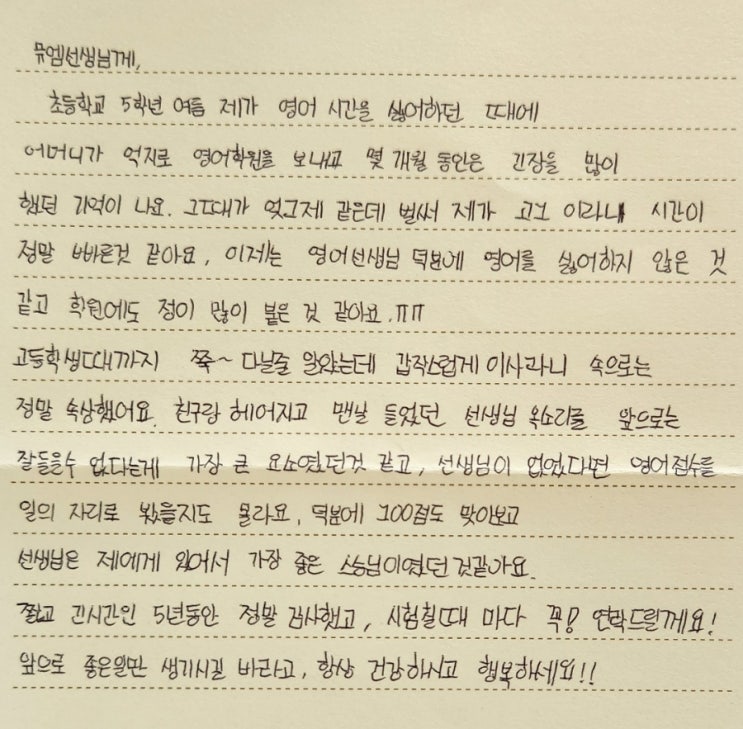 뮤엠선생님께,
초등학교 5학년 여름 제가 영어 시간을 싫어하던 때에
어머니가 억지로 영어학원을 보내고 몇 개월 동안은 긴장을 많이
했던 기억이 나요. 그때가 엊그제 같은데 벌써 제가 고1 이라니 시간이
정말 빠른것 같아요, 이제는 영어선생님 덕분에 영어를 싫어하지 않은 것
같고 학원에도 정이 많이 붙은 것 같아요.ㅠㅠ
고등학생때까지 쭉~ 다닐줄 알았는데 갑작스럽게 이사라니 속으로는
정말 속상했어요. 친구랑 헤어지고 맨날 들었던 선생님 목소리를 앞으로는
잘들을수 없다는게 가장 큰 요소였던것 같고, 선생님이 없었다면 영어점수를
일의 자리로 봤을지도 몰라요, 덕분에 100점도 맞아보고
선생님은 제에게 있어서 가장 좋은 스승님이였던것같아요.
짧고 긴시간인 5년동안 정말 감사했고, 시험칠때 마다 꼭! 연락드릴께요!
앞으로 좋은일만 생기시길 바라고, 항상 건강하시고 행복하세요!!